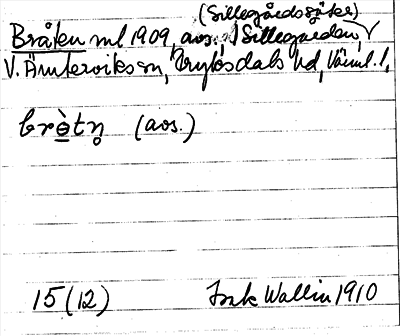 (Sillegårdssäter)
Bråten ml 1909, avs. Sillegården,
V. Ämterviks sn, Fryksdals hd, Värml. l.
bròtn̥ (avs.)
15 (12) Wallin 1910